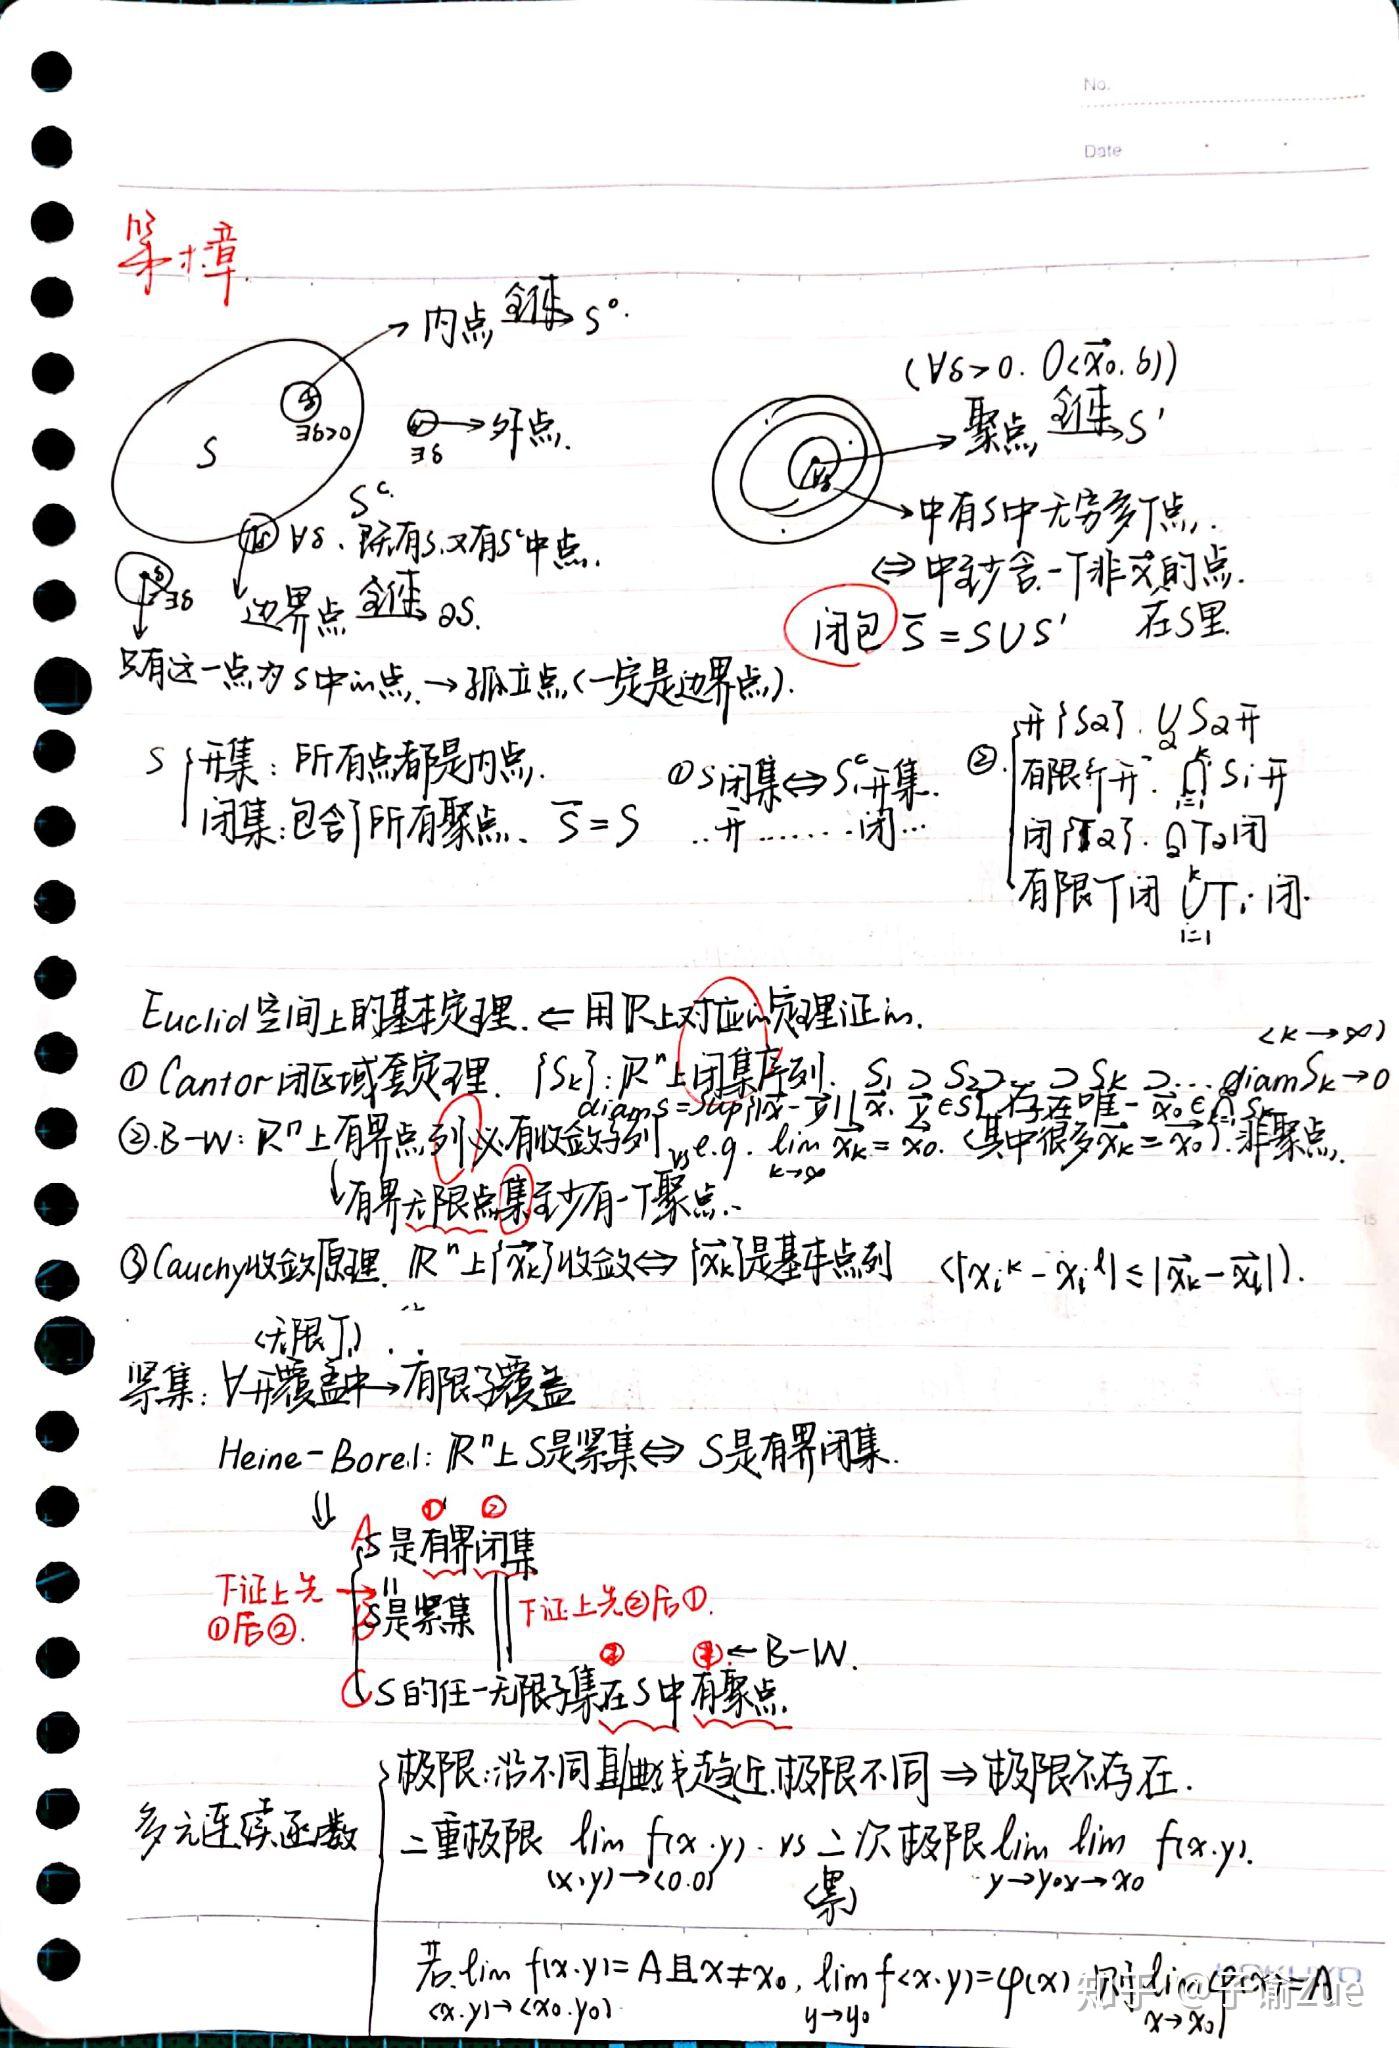 No.
Date
第十章
内点 全体→ S°.
S
∃δ>0
∃δ → 外点.
Sᶜ
∀δ. 既有S.又有Sᶜ中点.
边界点 全体→ ∂S.
∃δ
只有这一点为S中in点. → 孤立点(一定是边界点).
(∀δ>0. O(x⃗₀.δ))
聚点 全体→ S'
→ 中有S中无穷多个点.
⇔ 中至少含一个非x⃗₀的点.
在S里.
闭包 S̄ = S∪S'
S { 开集: 所有点都是内点.
闭集: 包含了所有聚点. S̄ = S
① S闭集⇔Sᶜ开集.
..开.......闭...
② { 开{Sα}. ∪α Sα开
有限个开. ∩ᵢ₌₁ᵏ Sᵢ开
闭{Tα}. ∩α Tα闭
有限个闭 ∪ᵢ₌₁ᵏ Tᵢ 闭.
Euclid空间上的基本定理. ← 用R上对应in定理证in.
(k→∞)
① Cantor闭区域套定理. {Sk}: Rⁿ上闭集序列. S₁⊃S₂⊃...⊃Sk⊃... diamSk→0
diam S = sup{|x⃗-y⃗| | x⃗.y⃗∈S} 存在唯一x⃗₀∈∩Sk
② B-W: Rⁿ上有界点列必有收敛子列 vs e.g. lim k→∞ x⃗k = x⃗₀. (其中很多x⃗k=x⃗₀). 非聚点.
↓有界无限点集至少有一个聚点.
③ Cauchy收敛原理. Rⁿ上{x⃗k}收敛⇔{x⃗k}是基本点列 (|xᵢᵏ-xᵢˡ|≤|x⃗k-x⃗l|).
(无限个)
紧集: ∀开覆盖中→有限子覆盖
Heine-Borel: Rⁿ上S是紧集⇔ S是有界闭集.
⇓
① ②
A S是有界闭集
下证上先①后②.
B S是紧集
下证上先②后①.
② ① ← B-W.
C S的任一无限子集在S中有聚点.
多元连续函数
极限: 沿不同直/曲线趋近.极限不同⇒极限不存在.
二重极限 lim (x.y)→(0.0) f(x.y). vs 二次极限 lim y→y₀ lim x→x₀ f(x.y).
(累)
若 lim (x.y)→(x₀.y₀) f(x.y)=A且x≠x₀, lim y→y₀ f(x.y)=φ(x) 则 lim x→x₀ φ(x)=A
知乎 @子谕Zue